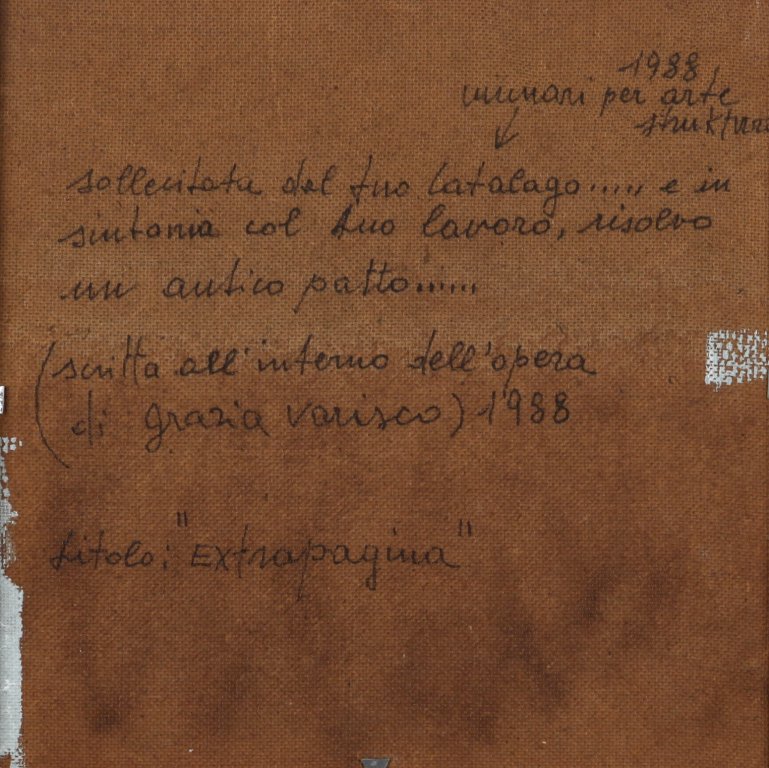 1988
munari per arte
struktura
sollecitata dal tuo Catalago...... e in
sintonia col tuo lavoro, risolvo
un antico patto......
(scritta all'interno dell'opera
di grazia varisco) 1988
titolo: "Extrapagina"